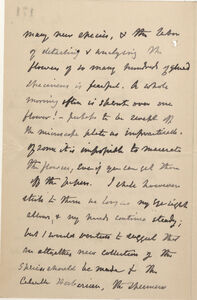 many new species, & the labor
of detecting & analysing the
flowers of so many hundred glued
specimens is fearful. A whole
morning often is spent over one
flower! – perhaps to be swept off
the microscope plate as impracticable.
Of some it is impossible to macerate
the flowers, even if you can get them
off the papers. I shall however
stick to them as long as my eye sight
allows, & my hands continue steady;
but I would venture to suggest that
an altogether new collection of the
species should be made for the
Calcutta Herbarium, the specimens